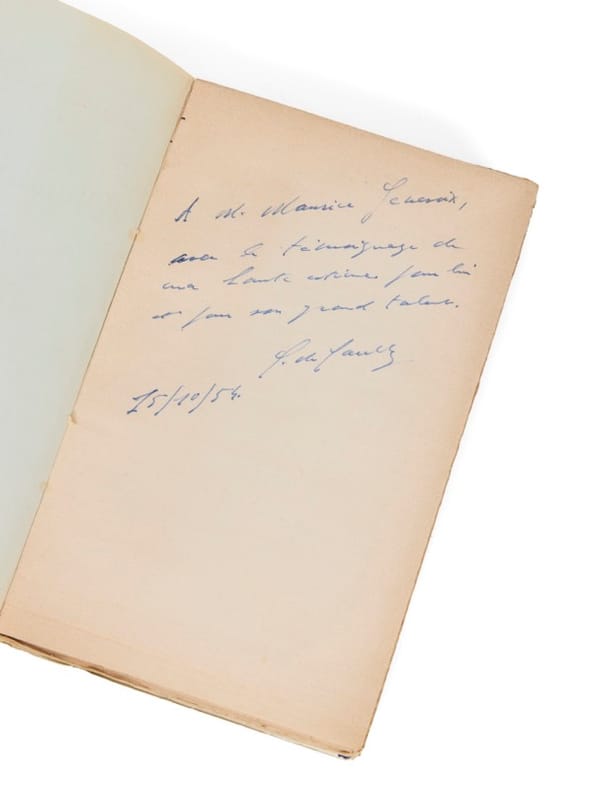 A M. Maurice Genevoix,
avec le témoignage de
ma haute estime pour lui
et pour son grand talent.
C. de Gaulle
25/10/54.